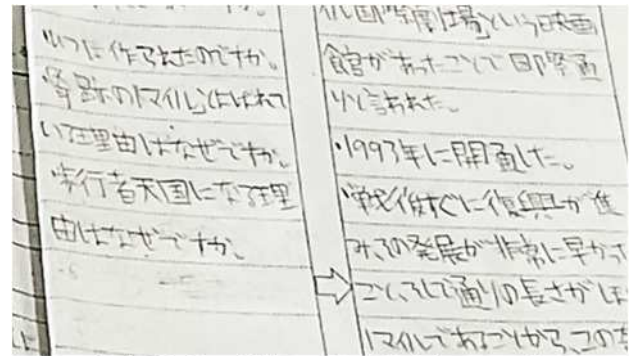 いつに作られたのですか。
「奇跡の1マイル」とよばれて
いる理由はなぜですか。
歩行者天国になる理
由はなぜですか。
館があったことで国際通
りと言われた。
・1993年に開通した。
戦後すぐに復興が進
み、その発展が非常に早かった
こと、そして通りの長さがほ
1マイルであることから、この